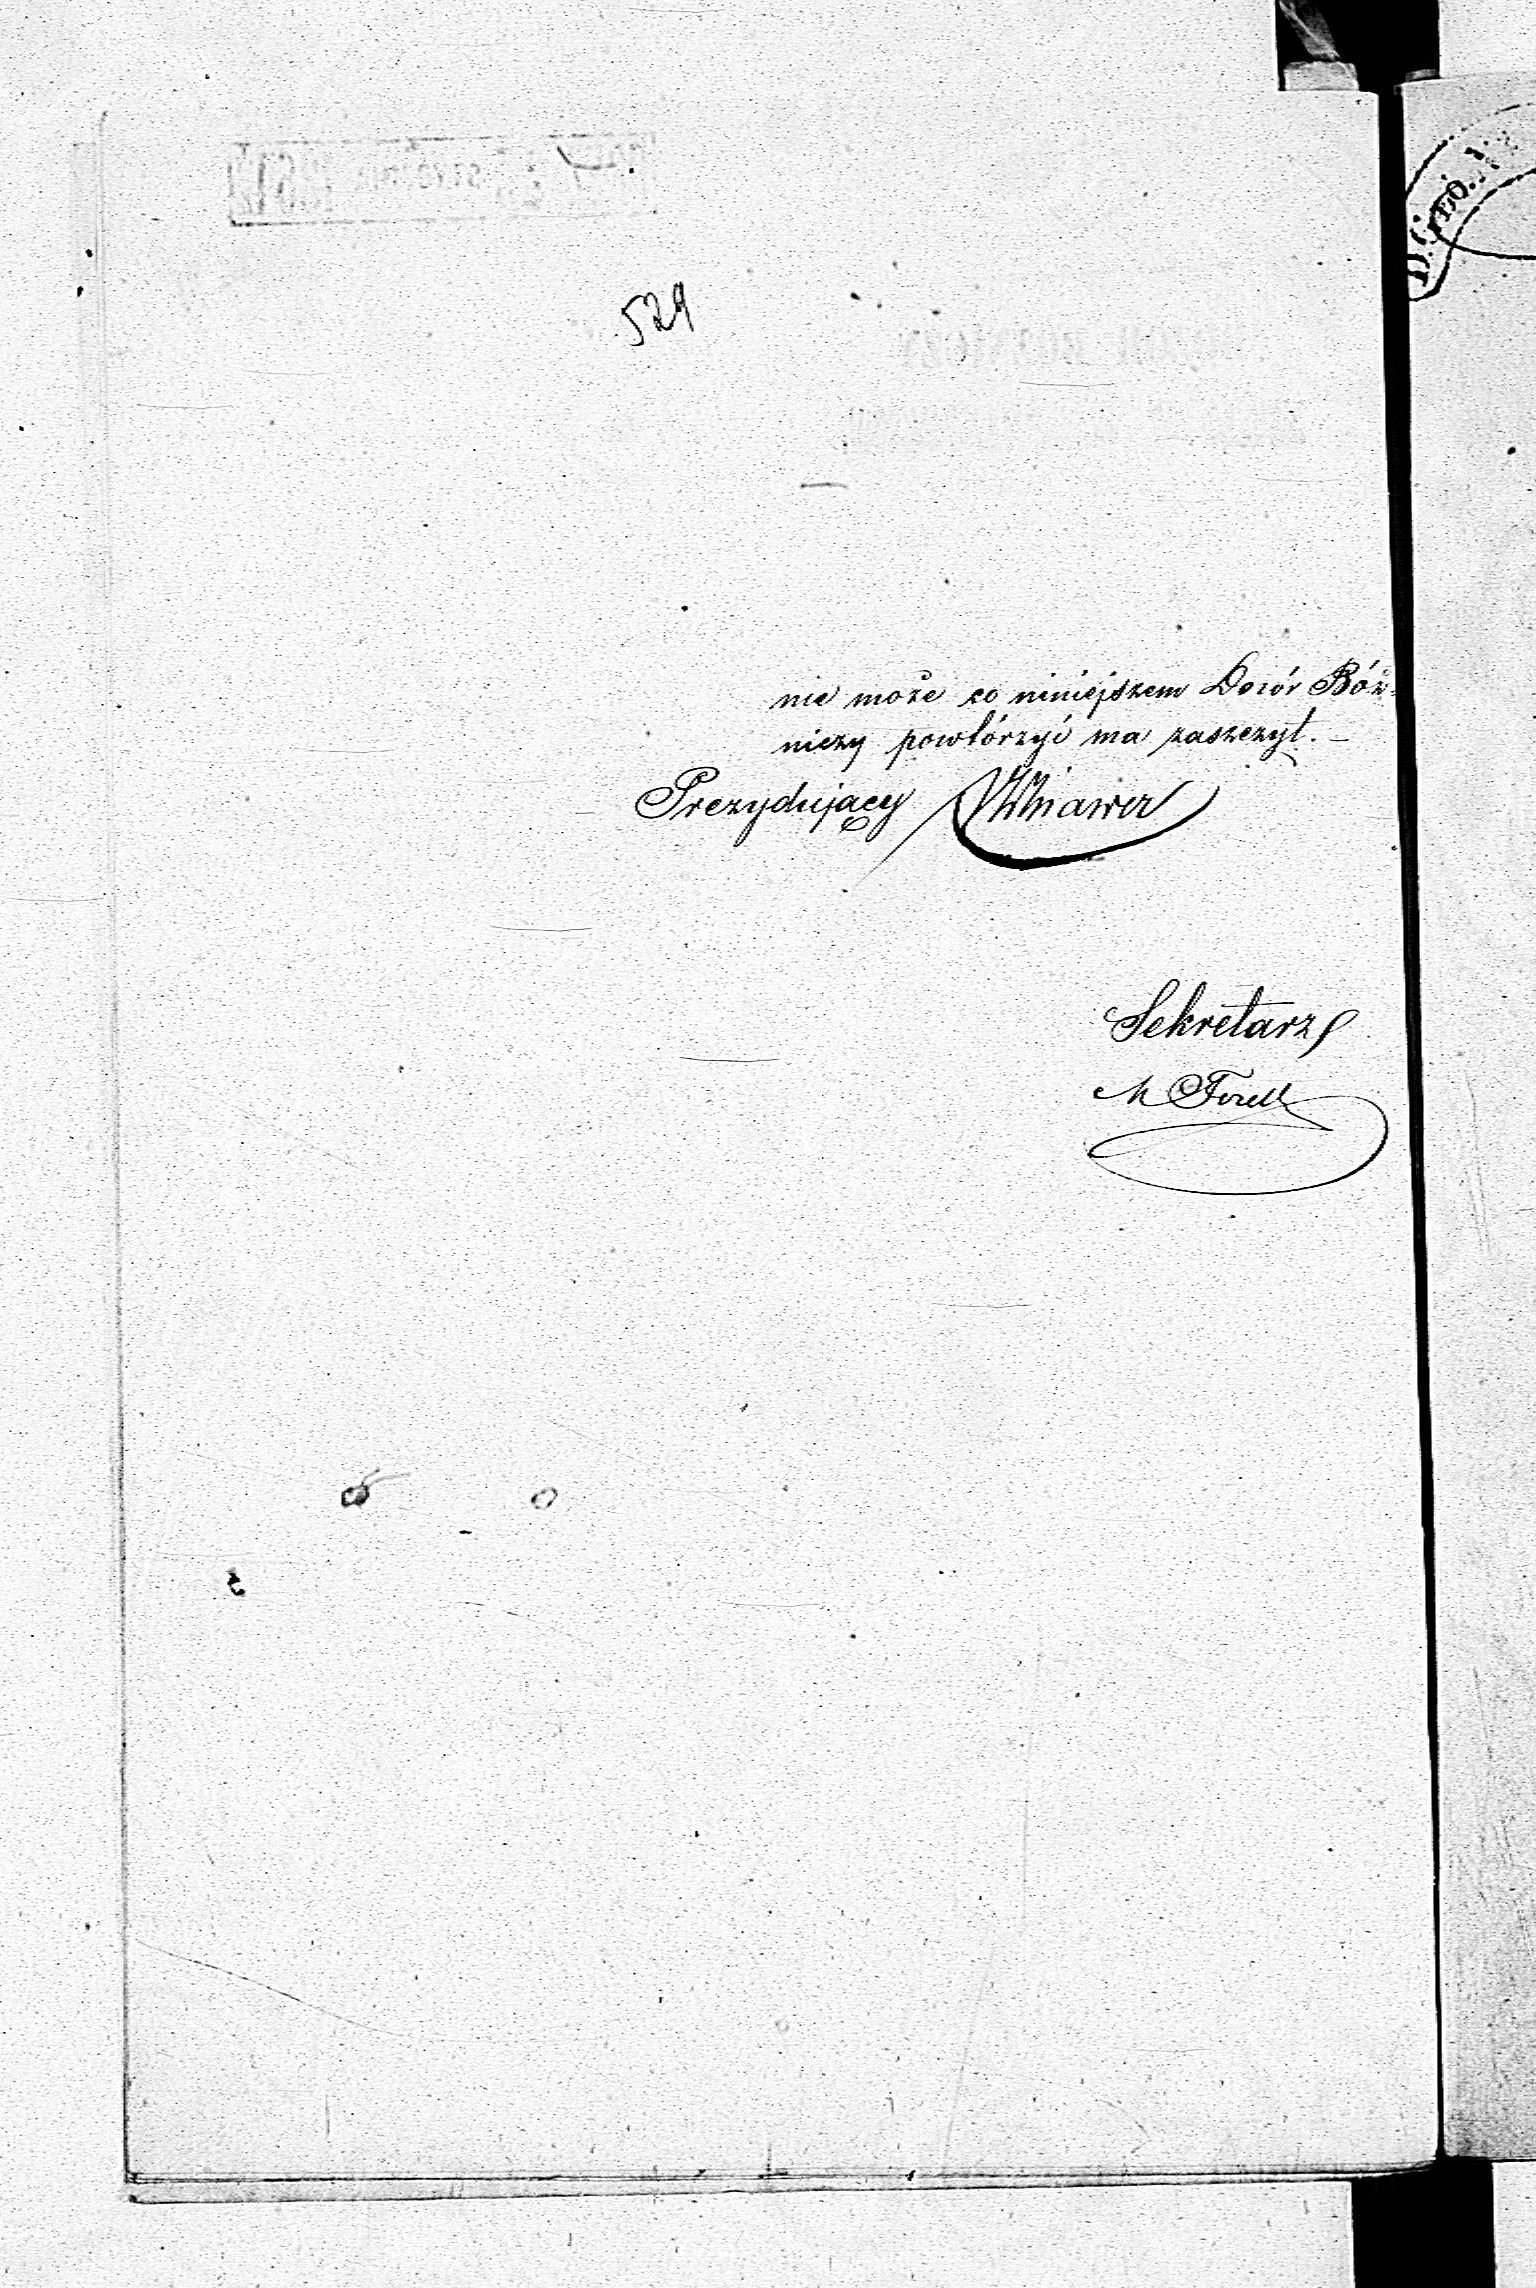 529
nie może co niniejszem Dozór Bóż-
niczy powtórzyć ma zaszczyt. –
Prezydujący Winawer
Sekretarz
M